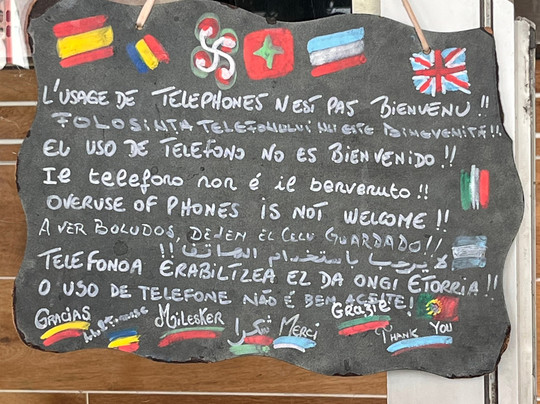 L'USAGE DE TELEPHONES N'EST PAS BIENVENU !!
FOLOSINTA TELEFONULUI NU ESTE BINEVENITĂ !!
EL USO DE TELEFONO NO ES BIENVENIDO !!
Il telefono non é il benvenuto !!
OVERUSE OF PHONES IS NOT WELCOME !!
A VER BOLUDOS, DEJEN EL CELU GUARDADO !!
لا يرحب باستخدام الهاتف !!
TELEFONOA ERABILTZEA EZ DA ONGI ETORRIA !!
O USO DE TELEFONE NÃO É BEM ACEITE !
GRACIAS
MILESKER
شكرا
MERCI
GRAZIE
THANK YOU